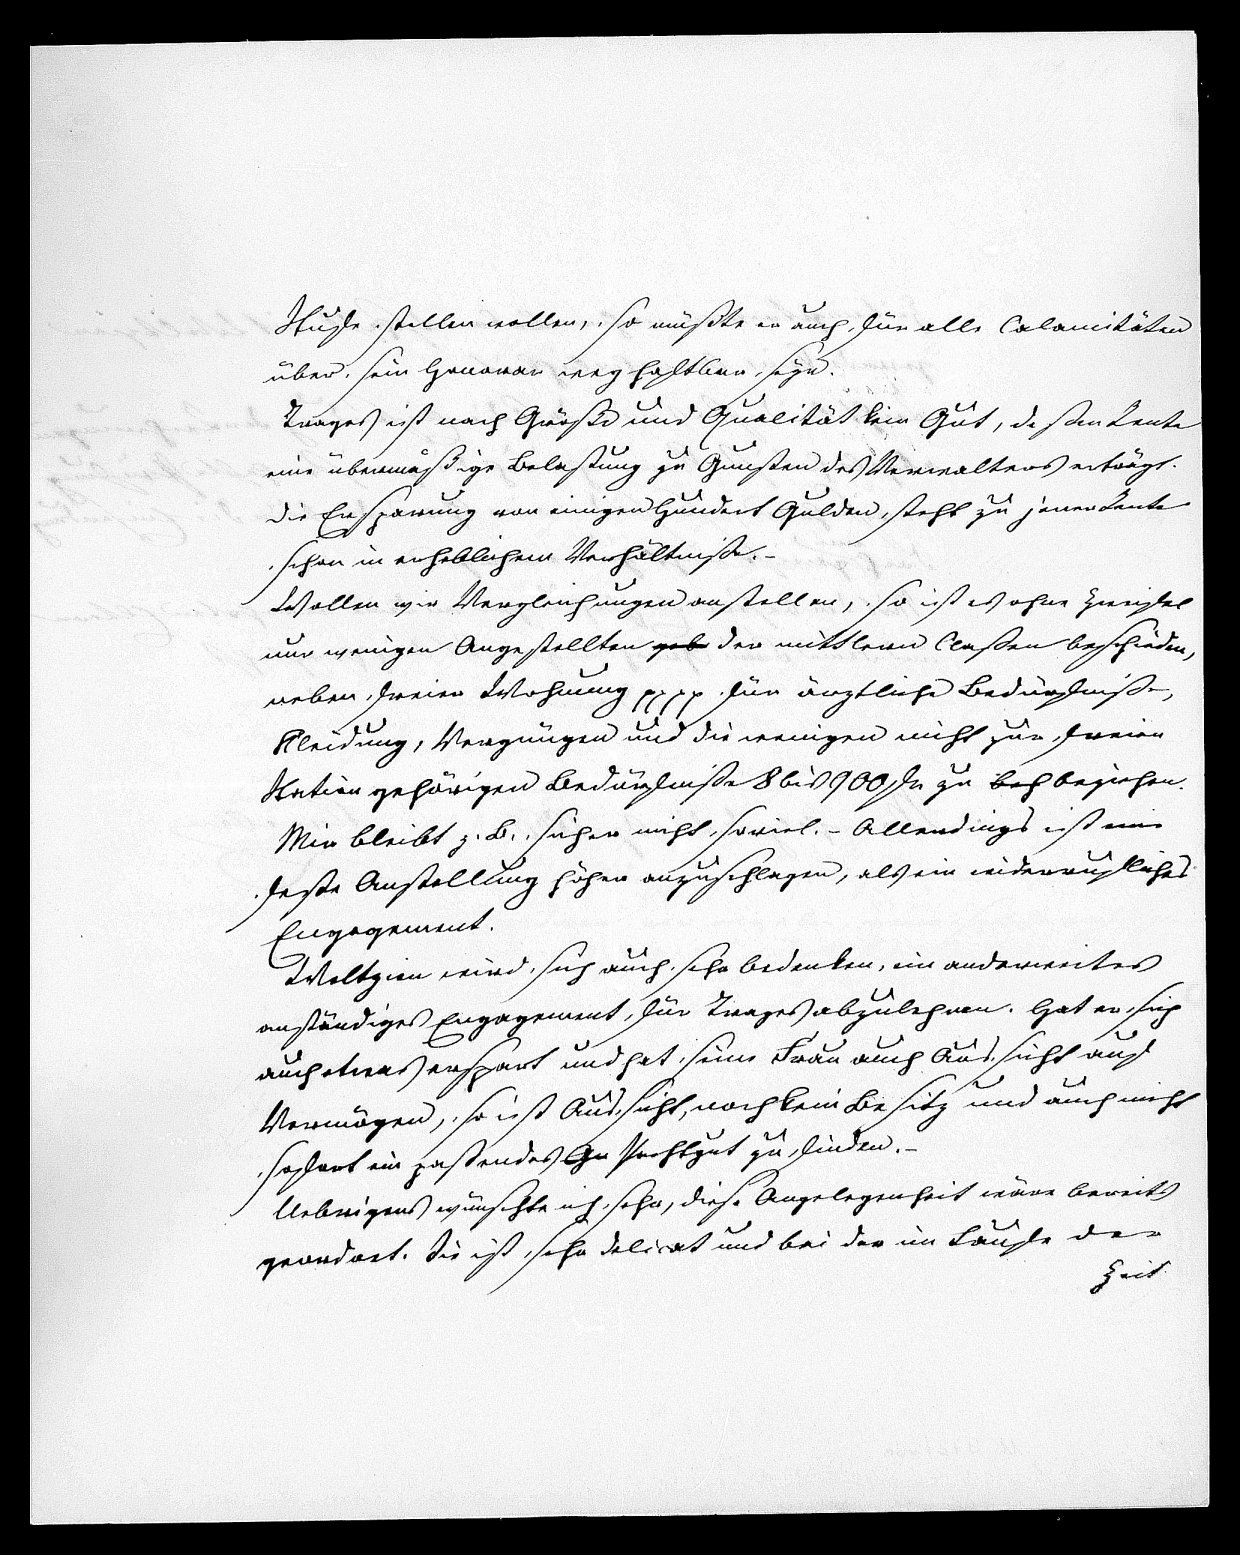 Stufe stellen wollen, so müßte er auch für alle Calamitäten
über sein Honorar weg haftbar seyn.
Trages ist nach Größe und Qualität kein Gut, deßen Rente
eine übermäßige Belastung zu Gunsten des Verwalters erträgt.
Die Ersparung von einigen Hundert Gulden steht zu jener Rente
schon in erheblichem Verhältniße. –
Wollen wir Vergleichungen anstellen, so ist es ohne Zweifel
nur wenigen Angestellten geb der mittlern Claßen beschieden,
neben freier Wohnung pppp für ärztliche Bedürfniße,
Kleidung, Vergnügen und die wenigen nicht zur freien
Station gehörigen Bedürfniße 8 bis 900 fr zu beh beziehen.
Mir bleibt z. B. sicher nicht soviel. – Allerdings ist eine
feste Anstellung höher anzuschlagen, als ein widerrufliches
Engagement.
Weltzien wird sich auch sehr bedenken, ein anderweites
anständiges Engagement für Trages abzulehnen. Hat er sich
auch etwas erspart und hat seine Frau auch Aussicht auf
Vermögen, so ist Aussicht, noch kein Besitz und auch nicht
sofort ein paßendes Gu Pachtgut zu finden. –
Uebrigens wünschte ich sehr, diese Angelegenheit wäre bereits
geordnet. Sie ist sehr delicat und bei der im Laufe der
Zeit